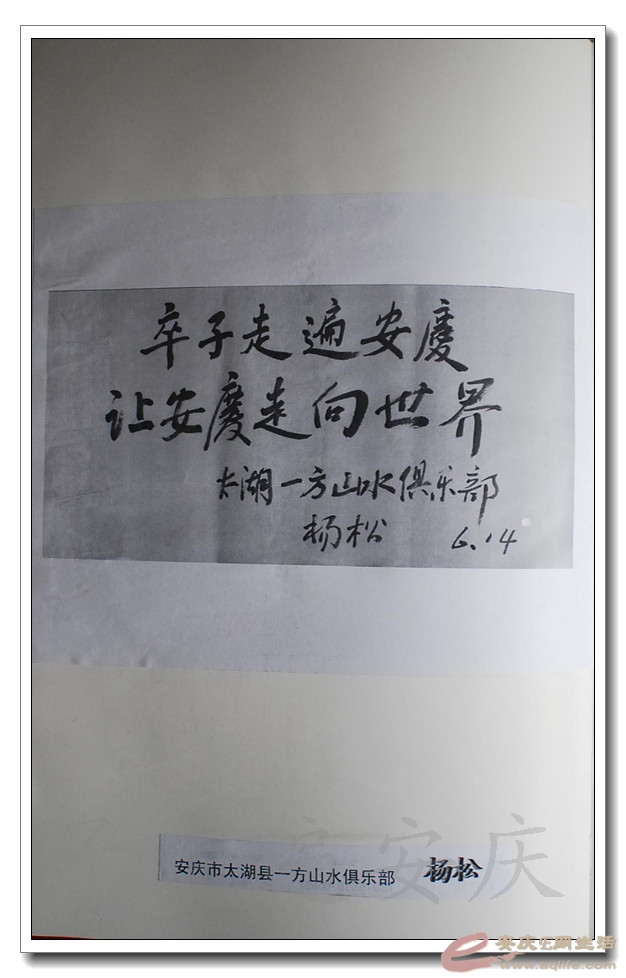 卒子走遍安慶
让安慶走向世界
太湖一方山水俱乐部
杨松 6.14
安庆市太湖县一方山水俱乐部 杨松
安庆
安庆E网生活
www.aqlife.com